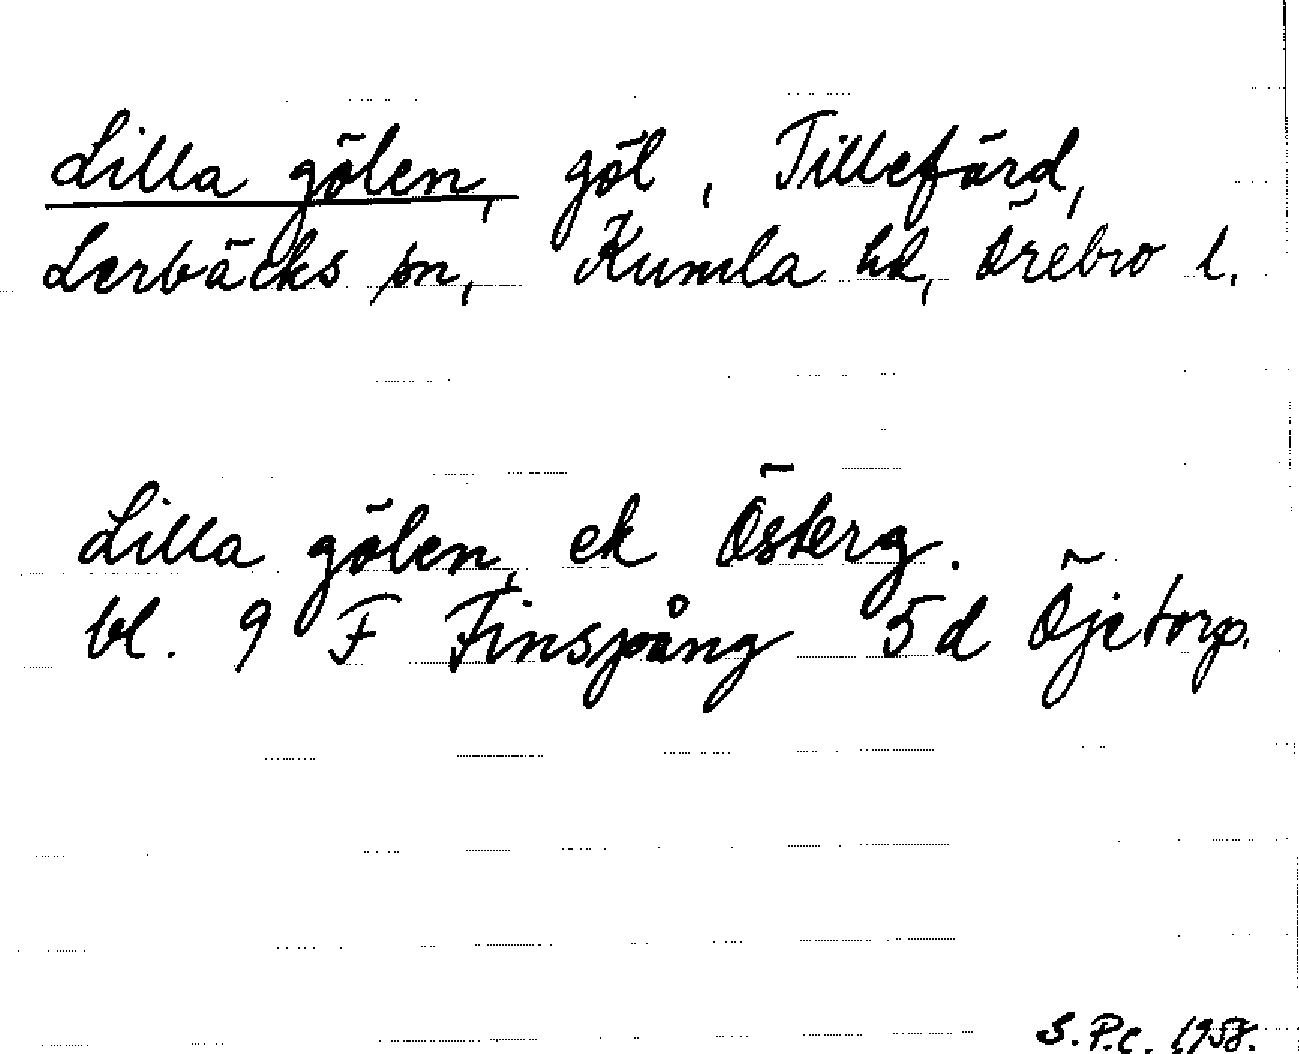 Lilla gölen, göl, Tillefärd,
Lerbäcks sn, Kumla hd, Örebro l.
Lilla gölen, ek Österg.
bl. 9 F Finspång 5d Öjetorp.
S.P.C. 1958.